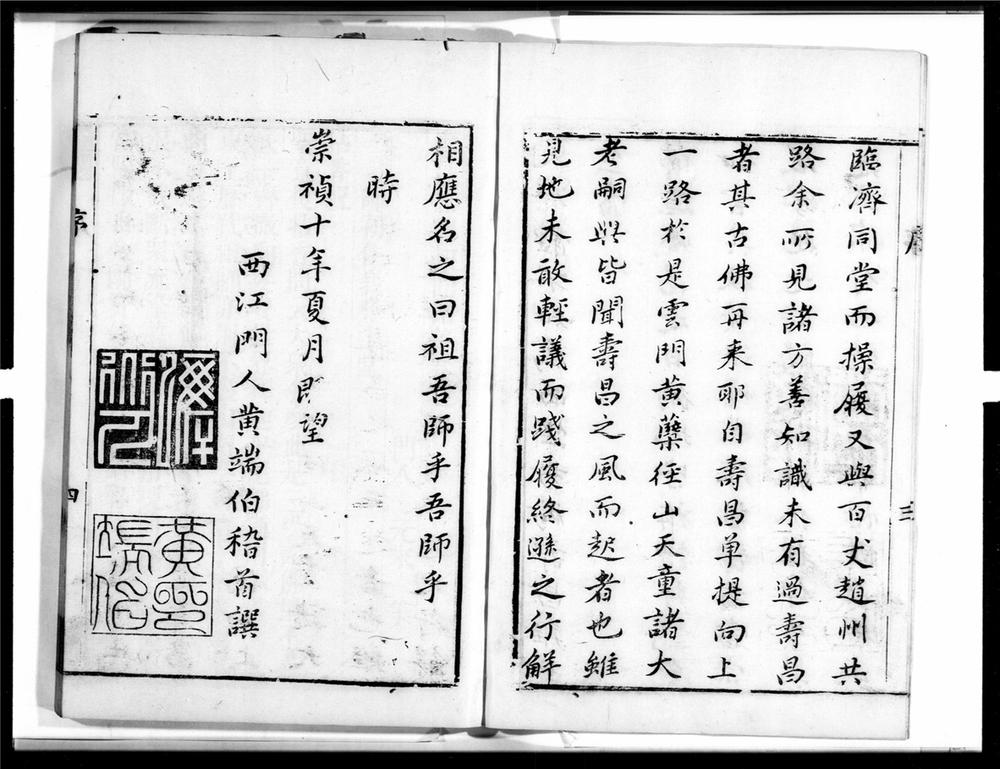 序
三
臨濟同堂而操履又與百丈趙州共
路余所見諸方善知識未有過壽昌
者其古佛再来耶自壽昌单提向上
一路於是雲門黄蘗徑山天童諸大
老嗣興皆聞壽昌之風而起者也雖
見地未敢輕議而踐履終遜之行解
相應名之曰祖吾師乎吾師乎
時
崇禎十年夏月既望
西江門人黄端伯稽首譔
黄印
端伯
序
四